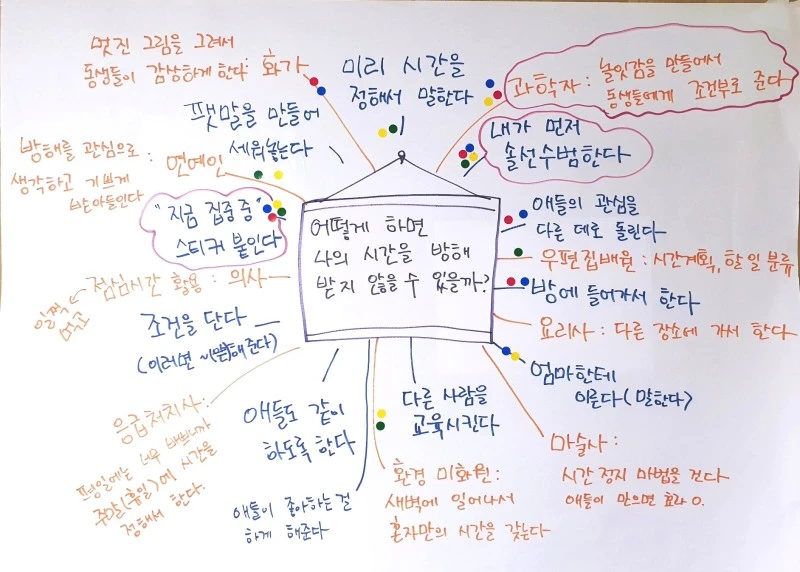 어떻게 하면
나의 시간을 방해
받지 않을 수 있을까?
멋진 그림을 그려서
동생들이 감상하게 한다 : 화가
미리 시간을
정해서 말한다
과학자 : 놀잇감을 만들어서
동생들에게 조건부로 준다
팻말을 만들어
세워놓는다
내가 먼저
솔선수범한다
방해를 관심으로 : 연예인
생각하고 기쁘게
받아들인다
"지금 집중 중"
스티커 붙인다
애들의 관심을
다른 데로 돌린다
우편집배원 : 시간계획, 할 일 분류
점심시간 활용 : 의사
일찍
먹고
방에 들어가서 한다
조건을 단다
(이러면 해준다)
요리사 : 다른 장소에 가서 한다
엄마한테
이른다(말한다)
응급처치사 :
평일에는 너무 바쁘니까
주말(휴일)에 시간을
정해서 한다.
애들도 같이
하도록 한다
다른 사람을
교육시킨다
마술사 :
시간 정지 마법을 건다
애들이 믿으면 효과 O.
애들이 좋아하는 걸
하게 해준다
환경 미화원 :
새벽에 일어나서
혼자만의 시간을 갖는다